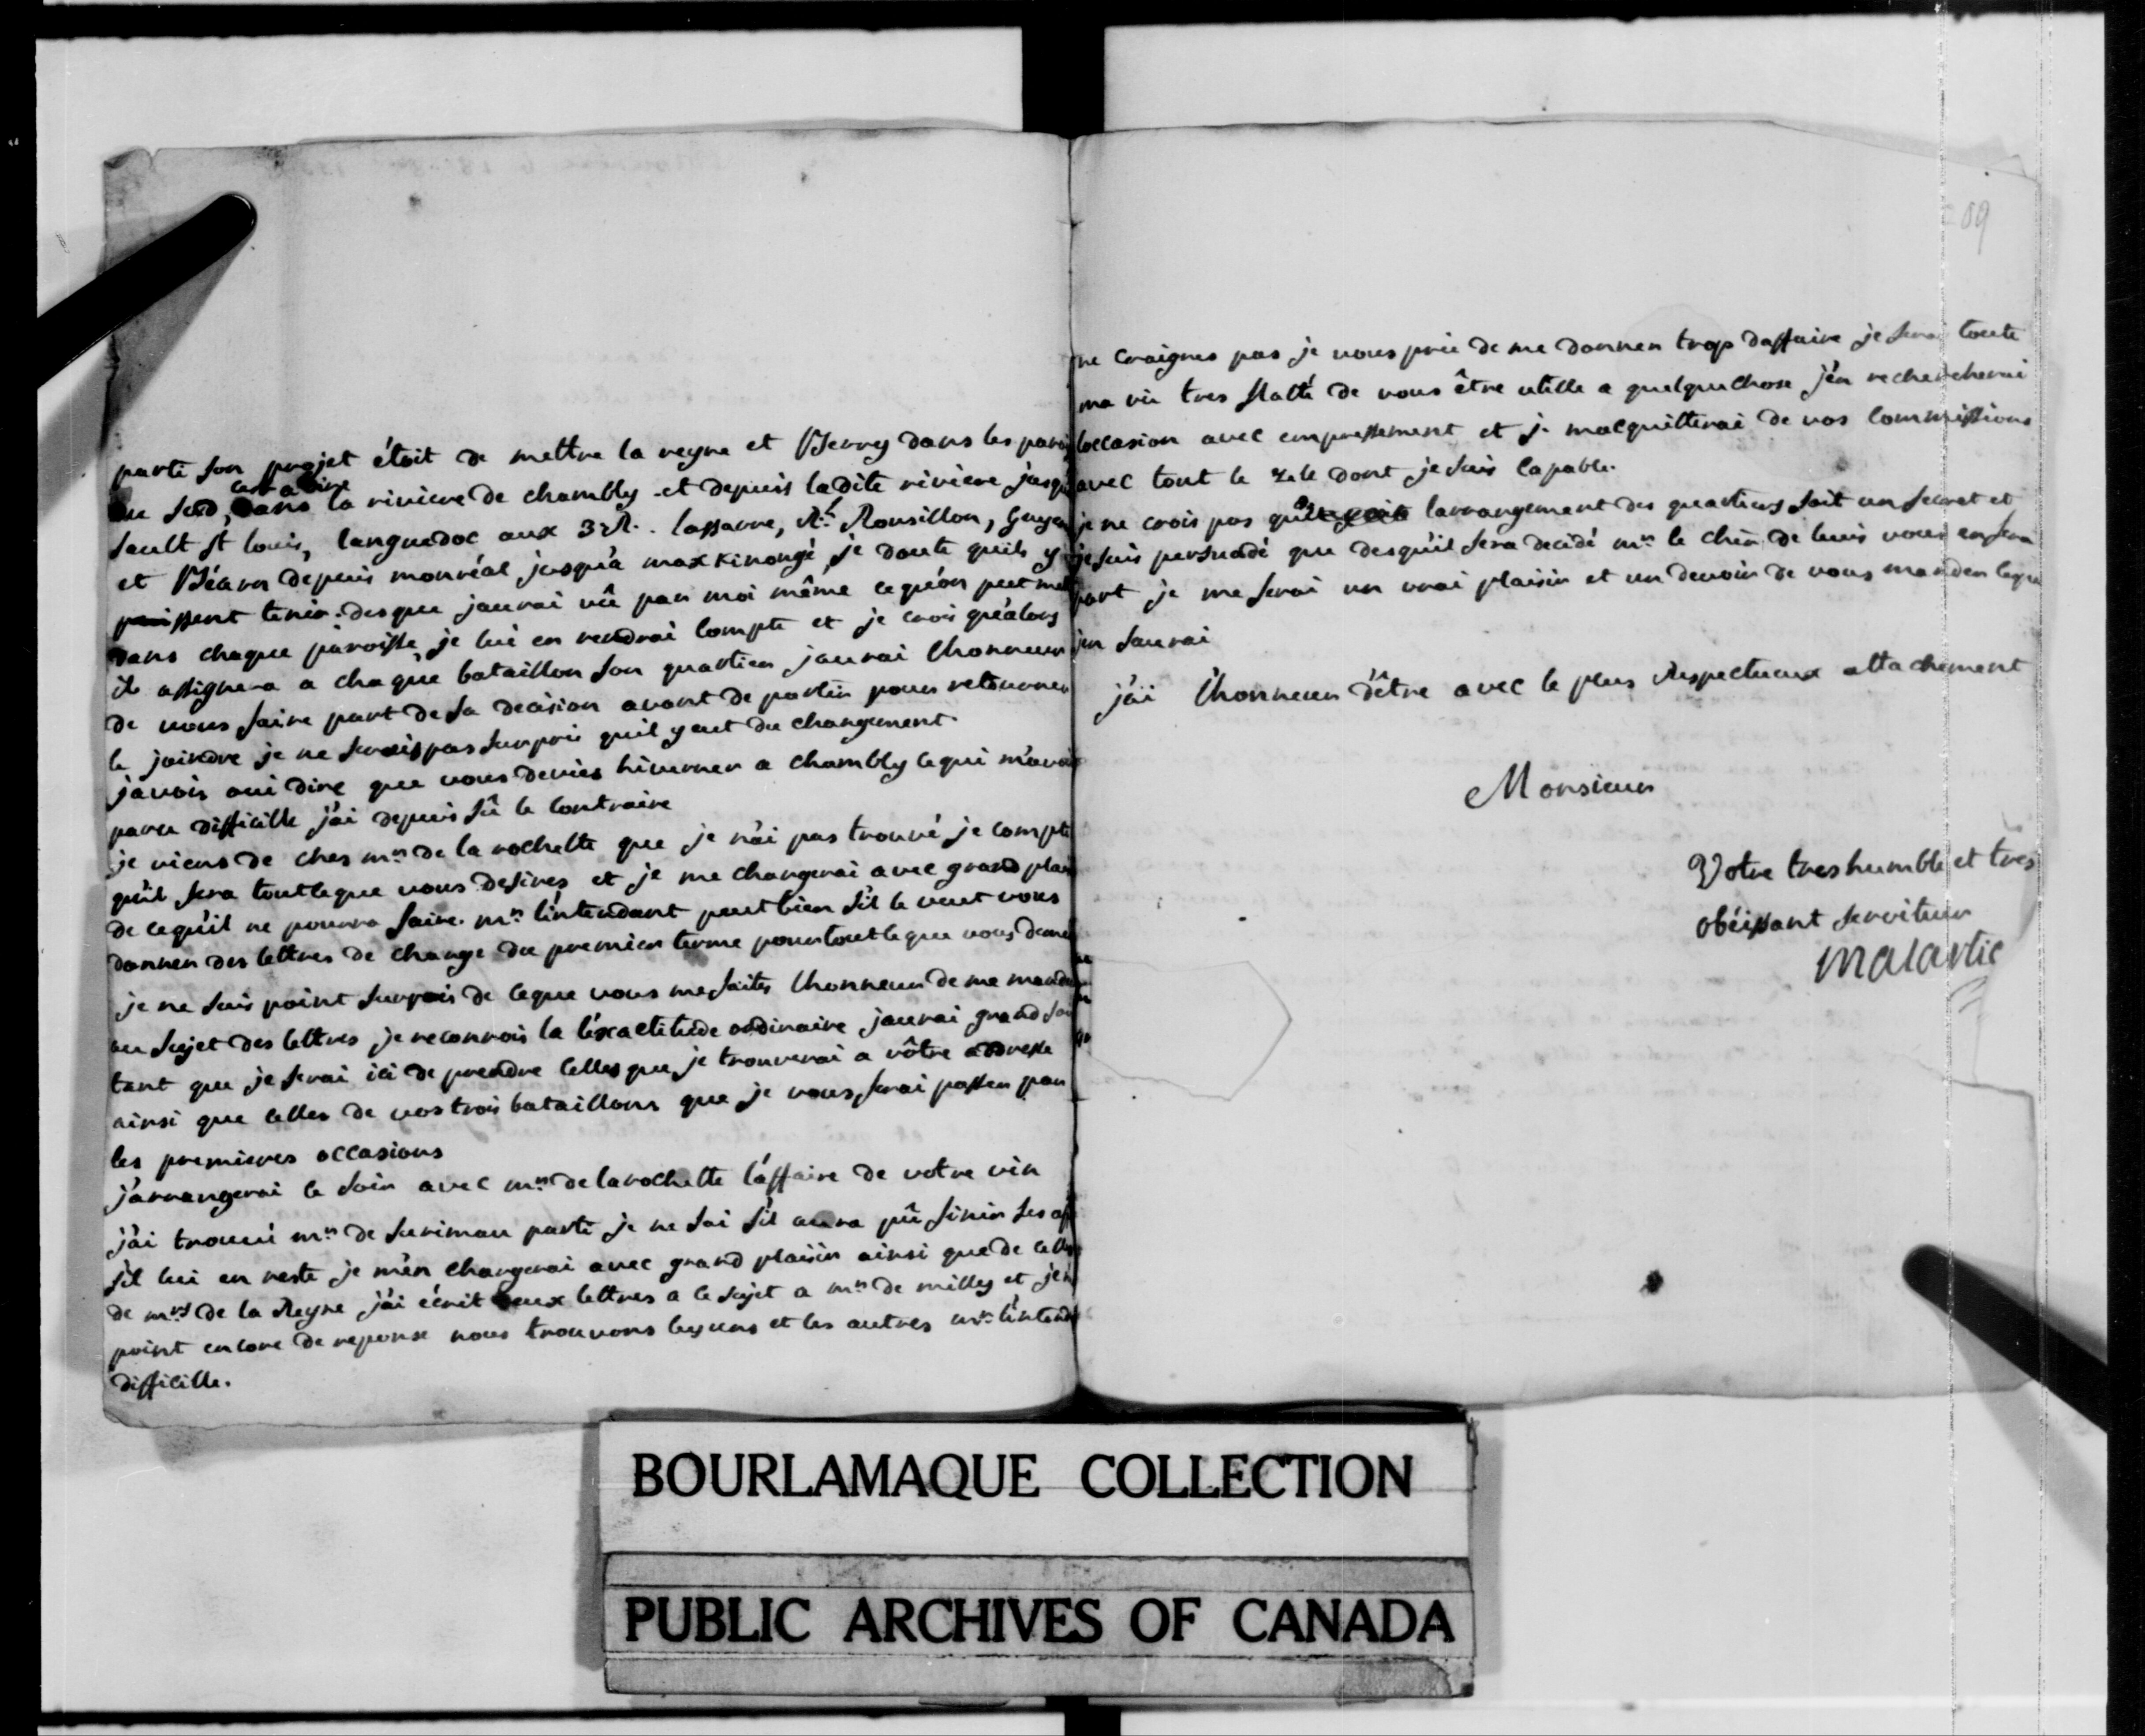 parti son projet étoit de mettre la reyne et Berry dans les parois
du sud, cest a dire dans la riviere de chambly et depuis ladite riviere jusqu
sault st louis, languedoc aux 3 R. lassarre, Rl. Rousillon, Guyen
et Béarn depuis monréal jusqu'à maxkinongé, je doute quils y
puissent tenir. des que jaurai vû par moi même ce qu'on peut met
dans chaque paroisse je lui en rendrai compte et je crois qu'alors
il assignera a chaque bataillon son quartier jaurai lhonneur
de vous faire part de sa decision avant de partir pour retourner
le joindre je ne serais pas surpris quil y eut du changement
javois oui dire que vous deviés hiverner a chambly ce qui m'avoit
paru difficille j'ai depuis sû le contraire
je viens de ches mr. de la rochette que je n'ai pas trouvé je compte
qu'il fera tout ce que vous desirés et je me chargerai avec grand plai
de ce qu'il ne pourra faire. mr. l'intendant peut bien s'il le veut vous
donner des lettres de change du premier terme pour tout ce que vous deman
je ne suis point surpris de ce que vous me faites lhonneur de me mander
au sujet des lettres je reconnois la l'éxactitude ordinaire jaurai grand soi
tant que je serai ici de prendre celles que je trouverai a vôtre addresse
ainsi que celles de vos trois bataillons que je vous ferai passer par
les premieres occasions
j'arrangerai ce soir avec mr. de la rochette l'affaire de votre vin
j'ai trouvé mr. de surimau parti je ne sai s'il aura pû finir ses aff
s'il lui en reste je m'en chargerai avec grand plaisir ainsi que de celles
de mrs de la Reyne j'ai écrit deux lettres a ce sujet a mr. de milly et je n'ai
point encore de reponse nous trouvons les uns et les autres mr. l'intend
difficille.
09
ne craignes pas je vous prie de me donner trop daffaire je serai toute
ma vie tres flatté de vous être utille a quelque chose j'en rechercherai
loccasion avec empressement et je macquitterai de vos commissions
avec tout le zele dont je suis capable.
je ne crois pas que larrangement des quartiers soit un secret et
je suis persuadé que desqu'il sera decidé mr. le chr. de levis vous en fera
part je me ferai un vrai plaisir et un devoir de vous mander ce que
j'en saurai
j'ai l'honneur d'être avec le plus respectueux attachement
Monsieur
Votre tres humble et tres
obéissant serviteur
malartic
BOURLAMAQUE COLLECTION
PUBLIC ARCHIVES OF CANADA